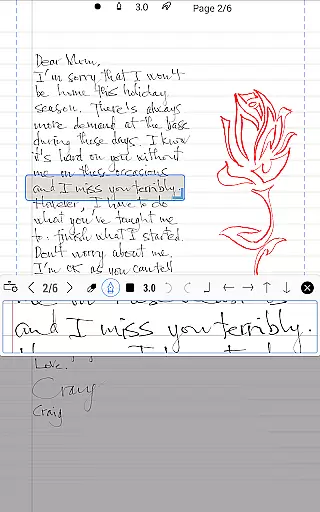 3.0 Page 2/6
Dear Mum,
I'm sorry that I won't
be home this holiday
season. There's always
more demand at the base
during these days. I know
it's hard on you without
me on these occasions
and I miss you terribly.
However, I have to do
what you've taught me
to. finish what I started.
Don't worry about me.
I'm OK as you can tell
2/6 3.0
and I miss you terribly.
Love.
Craig
Craig